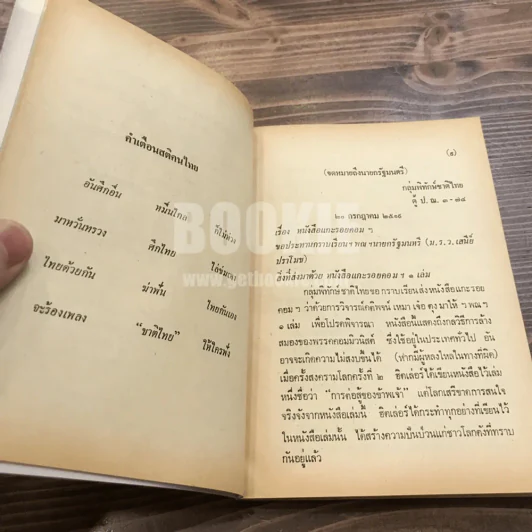 คำเตือนสติคนไทย
อันศึกอื่น หมื่นไกล
มาหวั่นทรวง ศึกไทย
ไทยด้วยกัน ฆ่าฟัน ไทยกันเอง
จะร้องเพลง "ชาติไทย" ให้ใครฟัง
(๔)
(จดหมายถึงนายกรัฐมนตรี)
กลุ่มพิทักษ์ชาติไทย
ตู้ ป. ณ. ๓-๗๘
๒๐ กรกฎาคม ๒๕๑๙
เรื่อง หนังสือแกะรอยคอม ฯ
ขอประทานกราบเรียน ฯพณฯนายกรัฐมนตรี (ม.ร.ว.เสนีย์
ปราโมช)
สิ่งที่ส่งมาด้วย หนังสือแกะรอยคอม ฯ ๑ เล่ม
กลุ่มพิทักษ์ชาติไทยขอกราบเรียนส่งหนังสือแกะรอย
คอม ฯ ว่าด้วยการวิจารณ์คติพจน์ เหมา เจ๋อ ตุง มาให้ ฯพณฯ
๑ เล่ม เพื่อโปรดพิจารณา หนังสือนี้แสดงถึงกลวิธีการล้าง
สมองของพรรคคอมมิวนิสต์ ซึ่งใช้อยู่ในประเทศทั่วไป อัน
อาจจะเกิดความไม่สงบขึ้นได้ (หากมีผู้หลงใหลในทางที่ผิด)
เมื่อครั้งสงครามโลกครั้งที่ ๒ ฮิตเล่อร์ได้เขียนหนังสือไว้เล่ม
หนึ่งชื่อว่า "การต่อสู้ของข้าพเจ้า" แต่โลกเสรีขาดการสนใจ
จริงจังจากหนังสือเล่มนี้ ฮิตเล่อร์ได้กระทำทุกอย่างที่เขียนไว้
ในหนังสือเล่มนั้น ได้สร้างความปั่นป่วนแก่ชาวโลกดังที่ทราบ
กันอยู่แล้ว
BOOKIE